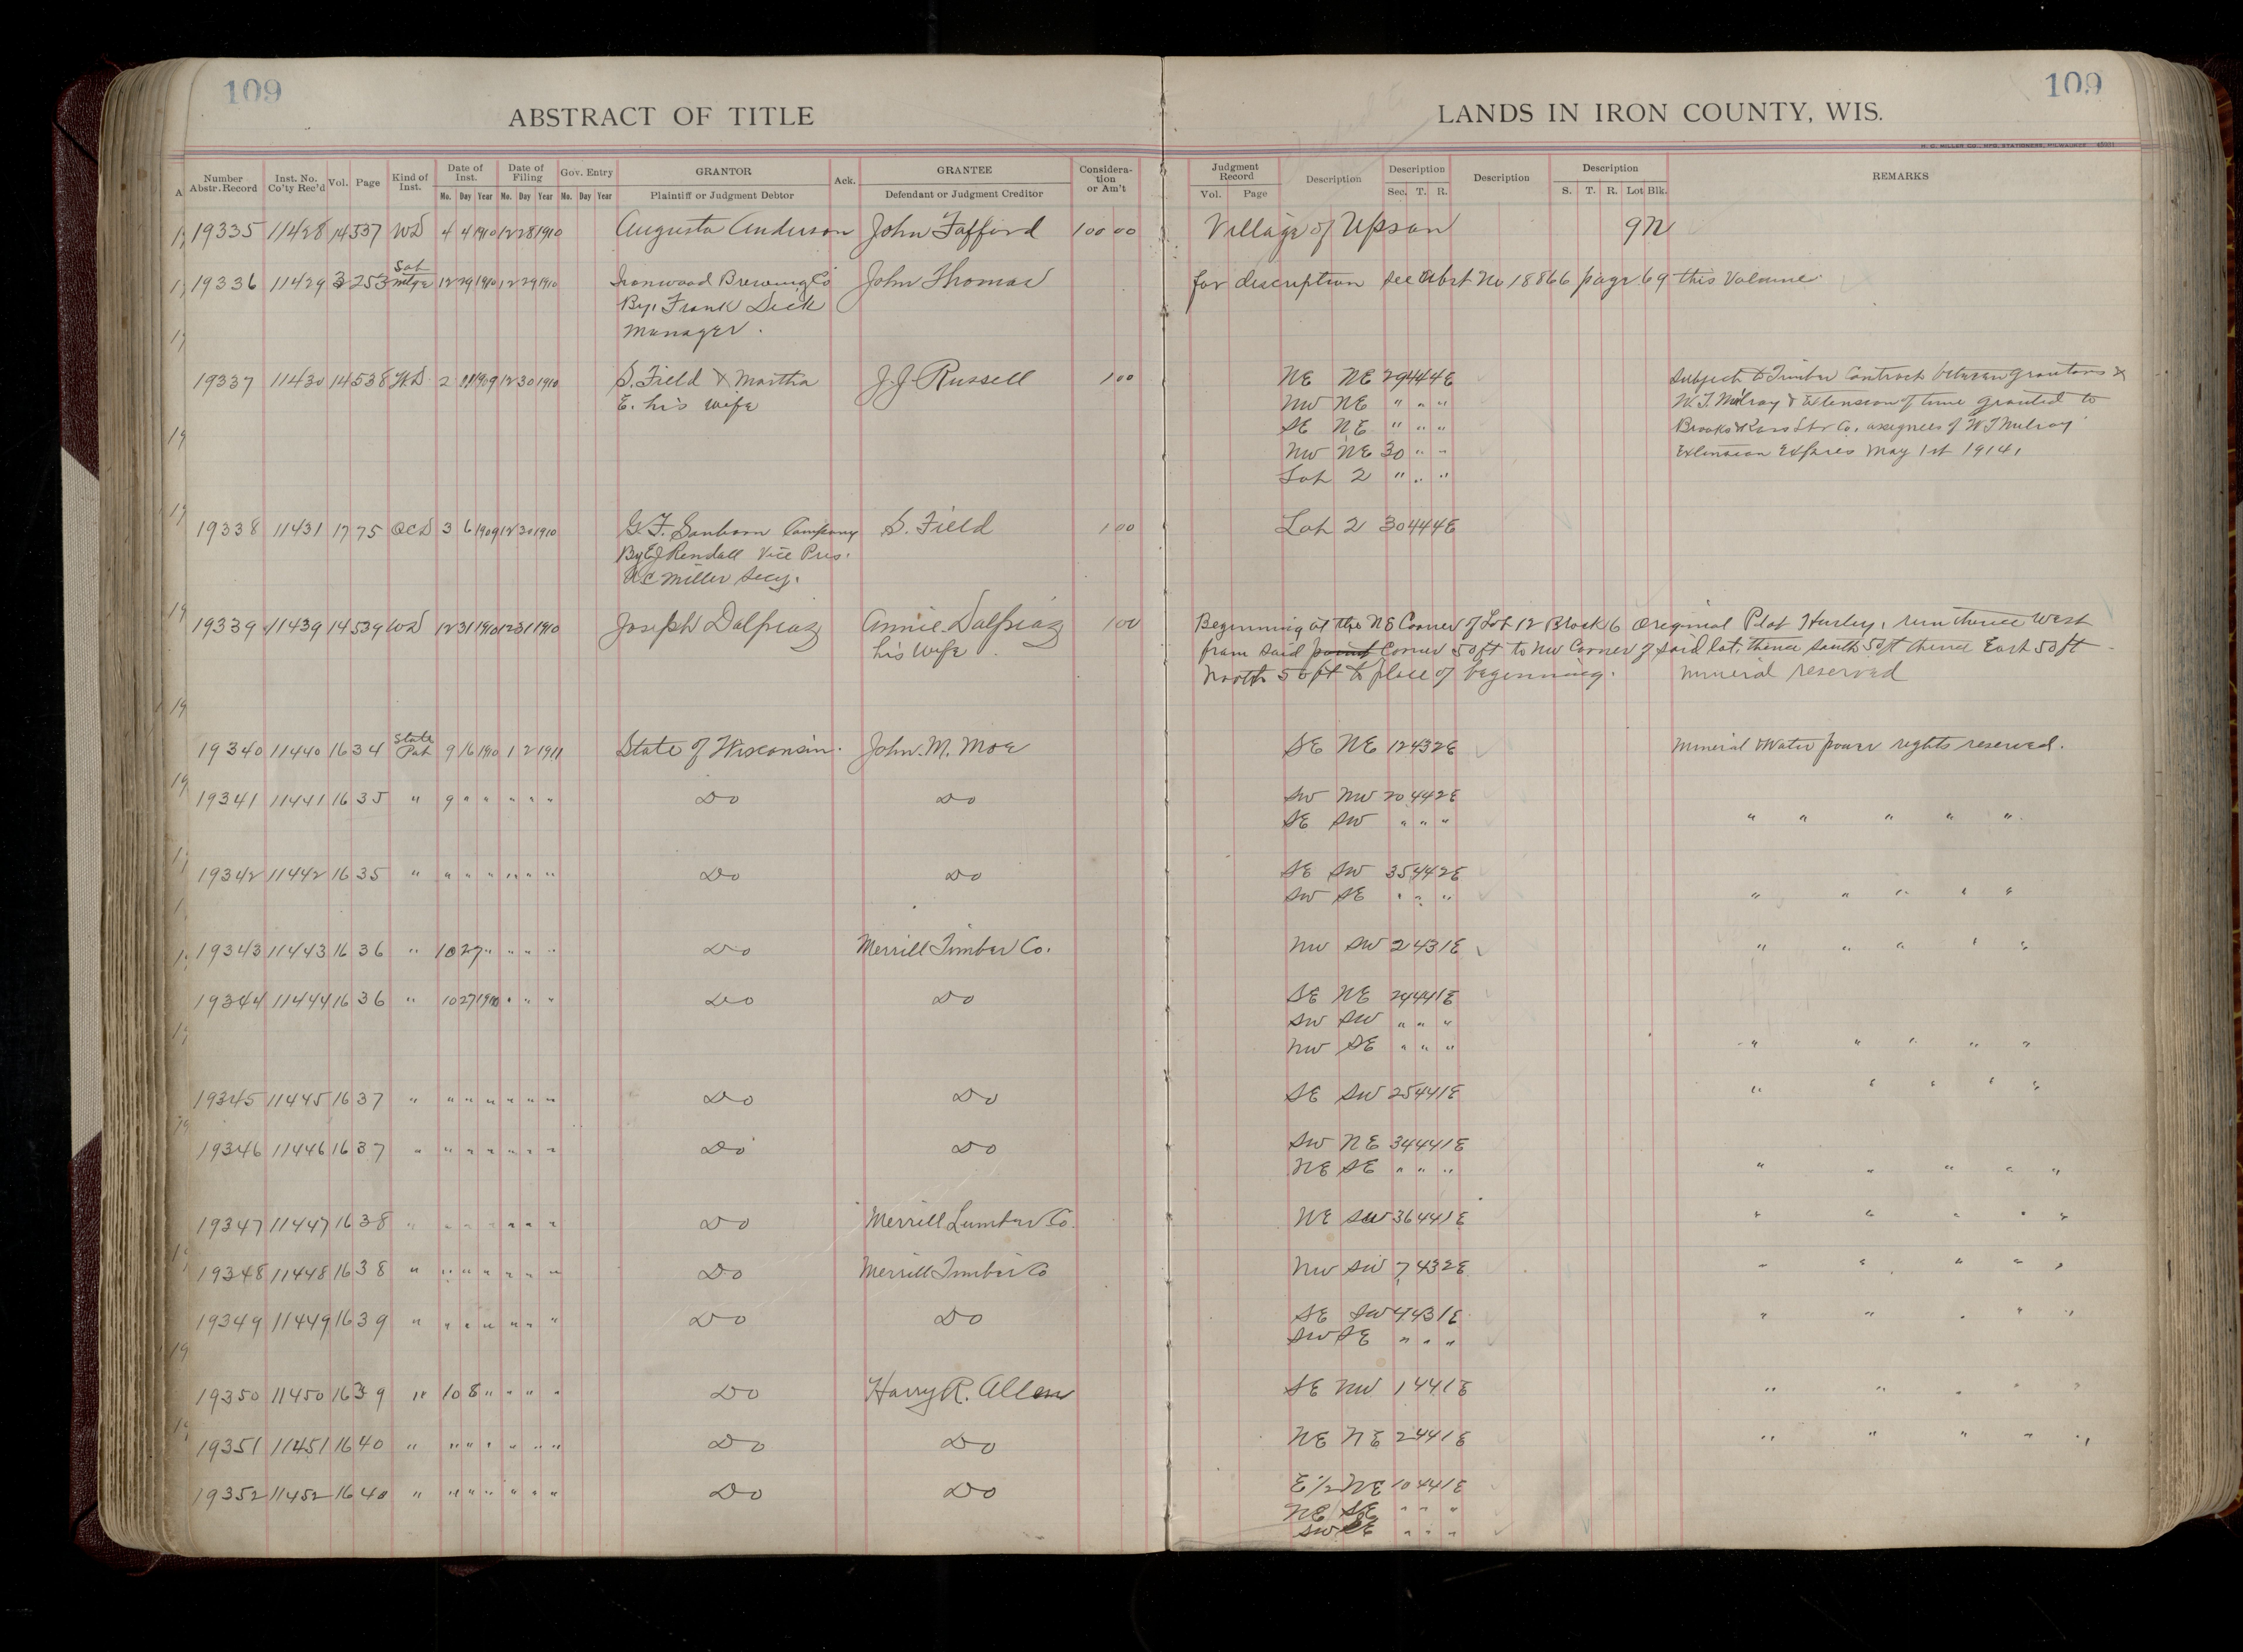 109
109
ABSTRACT OF TITLE
LANDS IN IRON COUNTY, WIS.
H. C. MILLER CO., MFG. STATIONERS, MILWAUKEE
Number Abstr. Record Inst. No. Co'ty Rec'd Vol. Page Kind of Inst. Date of Inst. Date of Filing Gov. Entry GRANTOR Ack. GRANTEE Consideration or Am't Judgment Record Description Description Description Description REMARKS
Mo. Day Year Mo. Day Year Mo. Day Year Plaintiff or Judgment Debtor Defendant or Judgment Creditor Vol. Page Sec. T. R. S. T. R. Lot Blk.
19335 11428 14 537 WD 4 4 1910 12 28 1910 Augusta Anderson John Fafford 100 00 Village of Upson 9 N
Sat
19336 11429 3 253 mtge 12 29 1910 12 29 1910 Ironwood Brewing Co John Thomas for discription see Abst No 18866 page 69 this Volume
By, Frank Dick
Manager.
19337 11430 14 538 WD 2 1909 12 30 1910 S. Field & Martha J. J. Russell 1 00 NE NE 29 44 4E Subject to Timber Contract between grantors &
E. his wife NW NE " " " W. T. Mulroy & Extension of time granted to
SE NE " " " Brooks & Ross Lbr Co. assignees of W T Mulroy
NW NE 30 " " Extension Expires May 1st 1914.
Lot 2 " " "
19338 11431 17 75 QCD 3 6 1909 12 30 1910 G. F. Sanborn Company S. Field 1 00 Lot 2 30 44 4E
By E J Rendall Vice Pres.
Miller Secy.
19339 11439 14 539 WD 12 31 1910 12 31 1910 Joseph Dalpiaz Annie Dalpiaz 1 00 Beginning at the NE Corner of Lot 12 Block 6 Original Plat Hurley, run thence West
his wife. from said point Corner 50 ft to NW Corner of said lot, thence south 50 ft thence East 50 ft
North 50 ft to place of beginning. mineral reserved
State
19340 11440 16 34 Pat 9 16 1910 1 2 1911 State of Wisconsin. John. M. Moe SE NE 12 43 2E Mineral & Water power rights reserved.
19341 11441 16 35 " 9 " " " " " Do Do SW NW 20 44 2E
SE SW " " " " " " " "
19342 11442 16 35 " " " " " " " Do Do SE SW 35 44 2E
SW SE " " " " " " " "
19343 11443 16 36 " 10 27 " " " " Do Merrill Timber Co. NW SW 2 43 1E " " " " "
19344 11444 16 36 " 10 27 1910 " " " Do Do SE NE 24 44 1E
SW SW " " "
NW SE " " " " " " " "
19345 11445 16 37 " " " " " " " Do Do SE SW 25 44 1E " " " " "
19346 11446 16 37 " " " " " " " Do Do SW NE 34 44 1E
NE SE " " " " " " " "
19347 11447 16 38 " " " " " " " Do Merrill Lumber Co. NE SW 36 44 1E " " " " "
19348 11448 16 38 " " " " " " " Do Merrill Timber Co NW SW 7 43 2E " " " " "
19349 11449 16 39 " " " " " " " Do Do SE SW 4 43 1E " " " " "
SW SE " " "
19350 11450 16 39 " 10 8 " " " " Do Harry R. Allen SE NW 1 44 1E " " " " "
19351 11451 16 40 " " " " " " " Do Do NE NE 2 44 1E " " " " "
19352 11452 16 40 " " " " " " " Do Do E 1/2 NE 10 44 1E
NE SE " " "
SW SE " " "